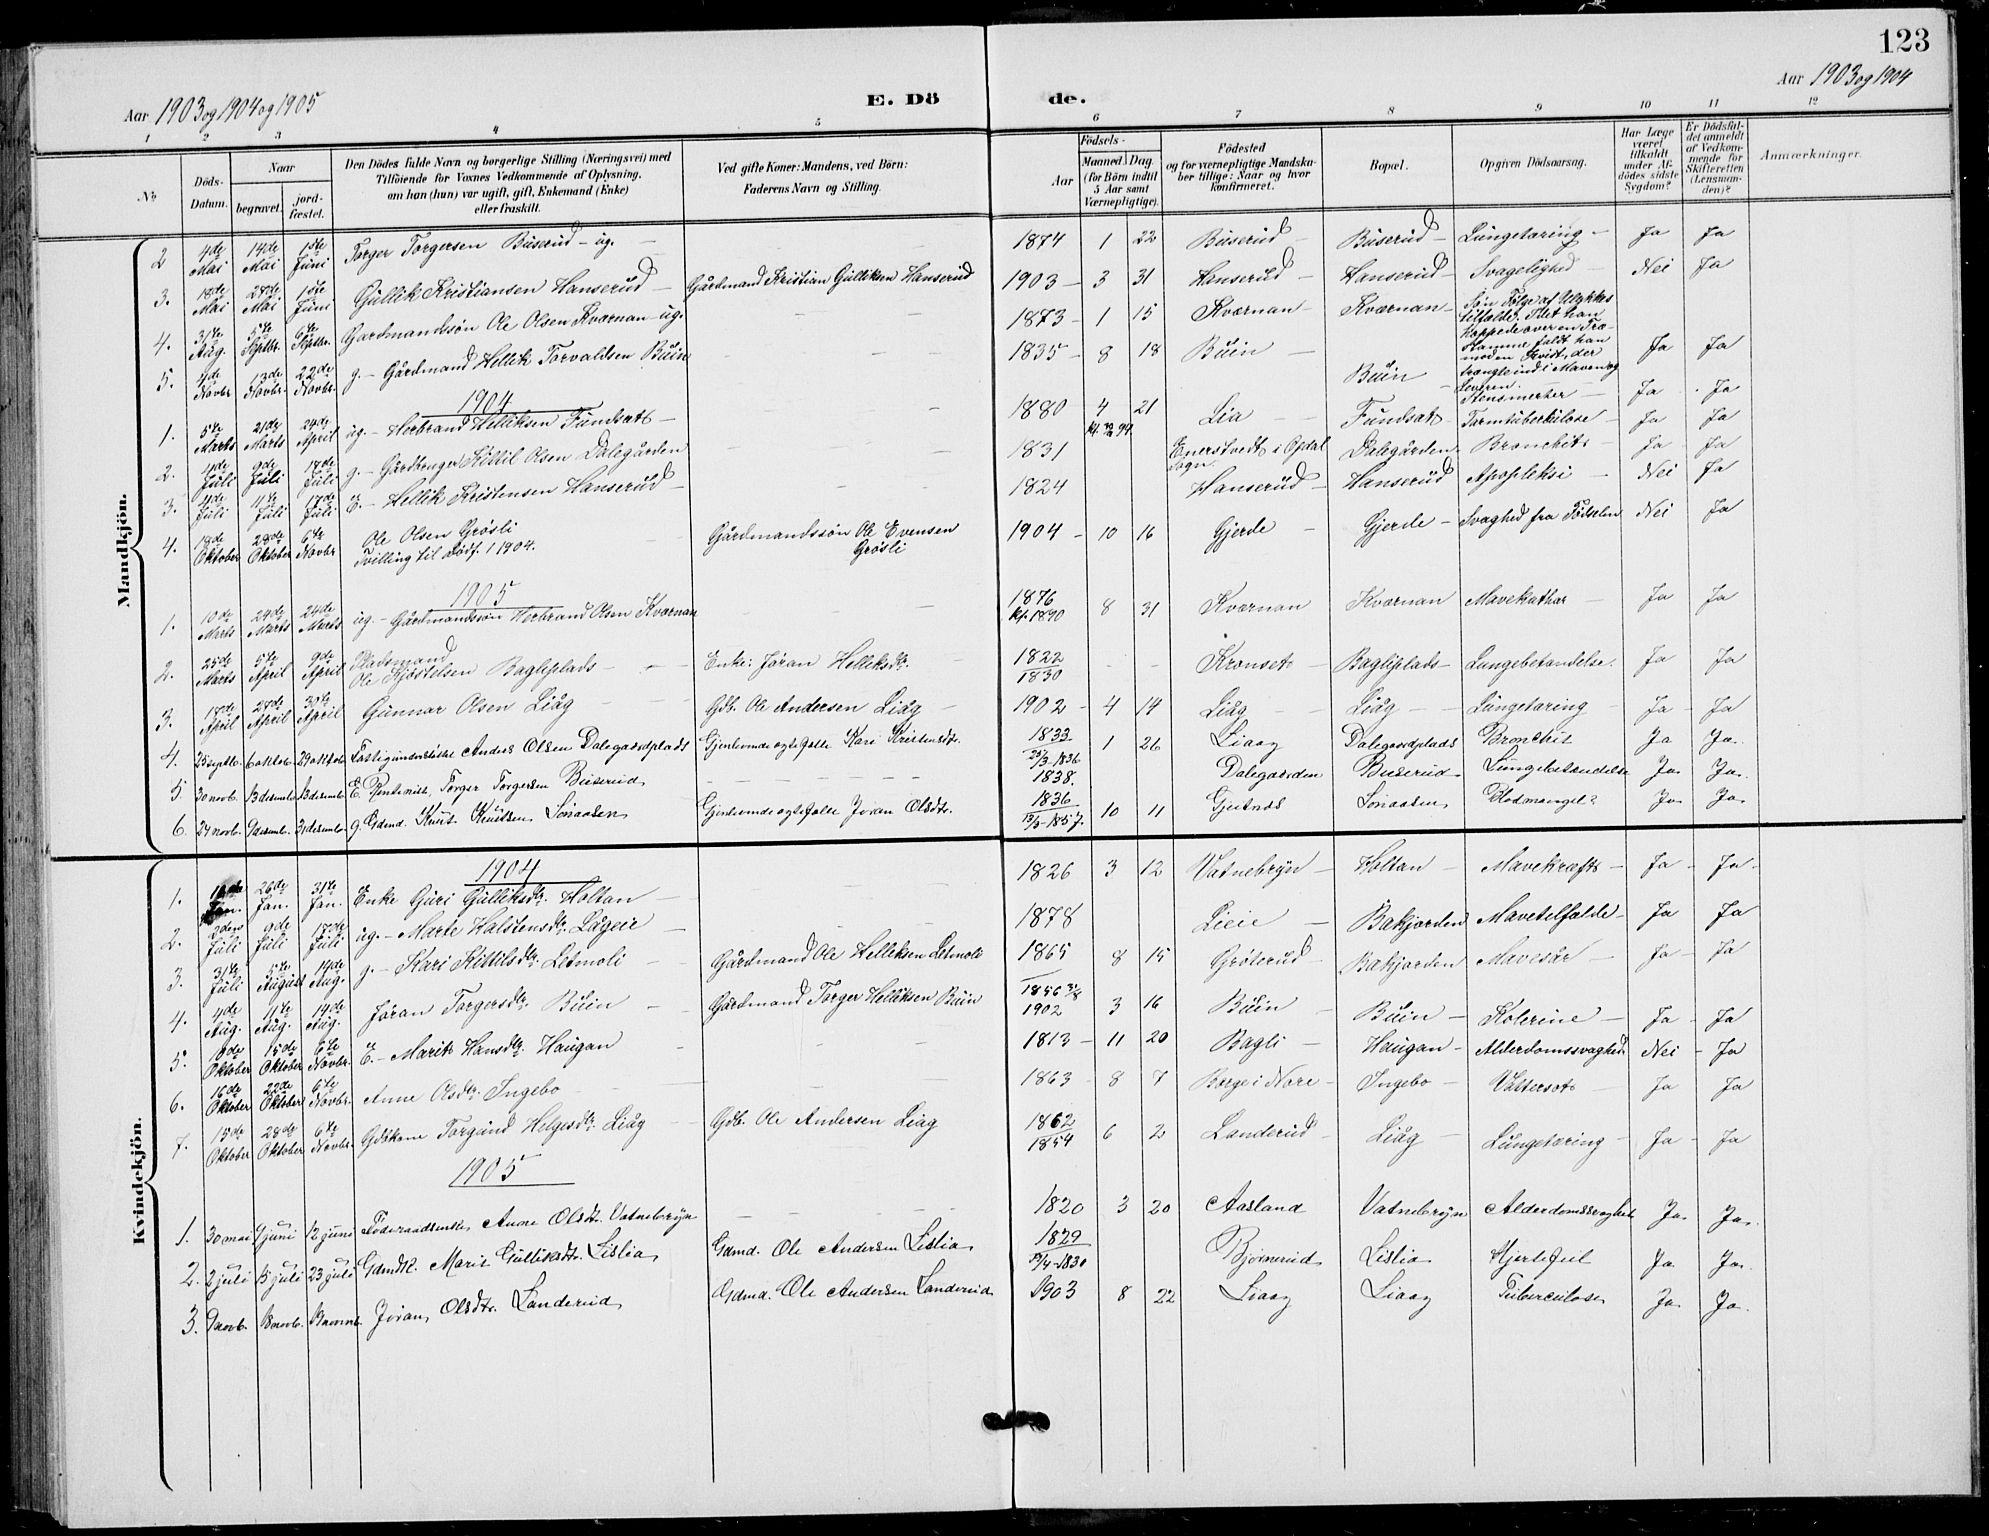 123
Aar 1903 og 1904 og 1905
E. Dö de.
Aar 1903 og 1904
1 2 3 4 5 6 7 8 9 10 11 12
No
Döds-Datum.
Naar
begravet.
jord-fæstet.
Den Dödes fulde Navn og borgerlige Stilling (Næringsvei) med
Tilföiende for Voxnes Vedkommende af Oplysning,
om han (hun) var ugift, gift, Enkemand (Enke)
eller fraskilt.
Ved gifte Koner: Mandens, ved Börn:
Faderens Navn og Stilling.
Födsels-
Aar
Maaned. Dag.
(for Börn indtil
5 Aar samt
Værnepligtige).
Födested
og for værnepligtige Mandska-
ber tillige: Naar og hvor
konfirmeret.
Bopæl.
Opgiven Dödsaarsag.
Har Læge været tilkaldt under Af-dödes sidste Sygdom?
Er Dödsfal-det anmeldt af Vedkom-mende for Skifteretten (Lensman-den)?
Anmærkninger.
Mandkjön.
2 4de Mai 14de Mai 1ste Juni Torger Torgersen Buserud - ug. 1874 1 22 Buserud Buserud Lungetæring Ja Ja
3. 18de Mai 28de Mai 1ste Juni Gullik Kristiansen Hanserud Gårdmand Kristian Gulliksen Hanserud 1903 3 31 Hanserud Hanserud Svagelighed Nei Ja
4. 31te Aug. 5te Septbr. 6te Septbr. Gardmandssön Ole Olsen Kværnan - ug. 1873 1 15 Kværnan Kværnan Søn Følge af Ulykkes tilfælde. Idet han hoppede over en Træ-stamme faldt han mod en Kvist, der trængte ind i Maven og Leveren. Ja Ja
5. 4de Novbr 13de Novbr. 22de Novbr. g. - Gårdmand Hellik Torvaldsen Buin 1835 8 18 Buin Buin Stensmerter Ja Ja
1904
1. 5te Marts 21de Marts 24de April ug. - Herbrand Helliksen Fundsat 1880 4 21 Lia Fundsat Tarmtuberkulose Ja Ja
2. 4de Juli 9de Juli 17de Juli g. - Gårdbruger Kittil Olsen Dalegården 1831 Enerstvedt i Opdal Sogn. Dalegården Bronchit Ja Ja
3. 4de Juli 11te Juli 17de Juli E. - Hellik Kristensen Hanserud 1824 Hanserud Hanserud Apopleksi Nei Ja
4. 18de Oktober 28de Oktober 6te Novbr Ole Olsen Grösli Tvilling til dödf. 1 1904. Gårdmandssön Ole Evensen Grösli 1904 10 16 Gjerde Gjerde Svaghed fra Födselen Nei Ja
1905
1. 10de Marts 24de Marts 24de Marts ug. - Gårdmandssön Herbrand Olsen Kværnan 1876 kf. 1890 8 31 Kværnan Kværnan Mavekathar Ja Ja
2. 25de Marts 5te April 9de April Pladsmand Ole Kjöstelsen Bagliplads Enke: Jöran Helliksdtr. 1822 1830 Kronset Bagliplads Lungebetændelse. Ja Ja
3. 17de April 27de April 30te April Gunnar Olsen Liåg Gdb. Ole Andersen Liåg 1902 4 14 Liåg Liåg Lungetæring Ja Ja
4. 25 septb. 6 oktob. 29 oktob. Fattigunderstöttet Anders Olsen Dalegaardplads Gjenlevende ægtefælle Kari Kristensdtr. 1833 1836 1 26 Liaag Dalegaardplads Bronchit Ja Ja.
5 30 novb. 13 desemb. 13 desemb. E. Rentenist, Torger Torgersen Buserud 1838. Dalegaarden Buserud Lungebetændelse Ja. Ja.
6. 24 novb. 9 desemb. 31 desemb. g. Gdmd. Knut Knutsen Sönaasen Gjenlevende ægtefælle Joran Olsdtr. 1836 1857. 10 11 Gjeitnes Sönaasen Blodmangel? Ja. Ja.
Kvindekjön.
1904
1. Jan. 26de Jan. 31te Jan. Enke Guri Gulliksdtr. Holtan 1826 3 12 Vatnebryn Holtan Mavekræft Ja Ja.
2. Juli 9de Juli 17de Juli ug. - Marte Halstensdtr. Lågeie 1878 Lieie Bakjorden Mavetilfælde Ja Ja
3. 31te Juli 5te August 14de Aug. g. - Kari Kittilsdtr.Letmoli Gårdmand Ole Helliksen Letmoli 1865 8 15 Gröterud Bakjorden Mavesår Ja Ja
4. 4de Aug. 11te Aug. 19de Aug. Jöran Torgersdtr. Buin Gårdmand Torger Helliksen Buin 1856 1902 3 16 Buin Buin Kolerine Ja Ja
5. 10de Oktober 15de Oktober 6te Novbr. E. - Marit Hansdtr. Haugan 1813 11 20 Bagli Haugan Alderdomssvaghed Nei Ja
6. 16de Oktober 22de Oktober 6te Novbr. Anne Olsdtr. Ingebo 1863 8 7 Borge i Nore Ingebo Vattersot Ja Ja
7. 15de Oktober 28de Oktober 6te Novbr. Gdskone Torgund Helgesdtr. Liåg Gdb. Ole Andersen Liåg 1862 1854 6 2 Landerud Liåg Lungetæring Ja Ja
1905
1. 30 mai 9 juni 12 juni Föderaadsenke, Anne Olsdtr. Vatnebryn 1820 3 20 Aasland Vatnebryn Alderdomssvaghet Ja. Ja.
2. 2 juli 15 juli 23 juli Gdmdk. Marit Gulliksdtr. Lislia Gdmd. Ole Andersen Lislia 1829 1830 Björnerud Lislia Hjertefeil Ja Ja.
3. 9 novb. 18 novb. 19 novemb. Joran, Olsdtr. Landerud Gdmd. Ole Andersen Landerud 1903 8 22 Liaag Liaag Tuberculose Ja. Ja.